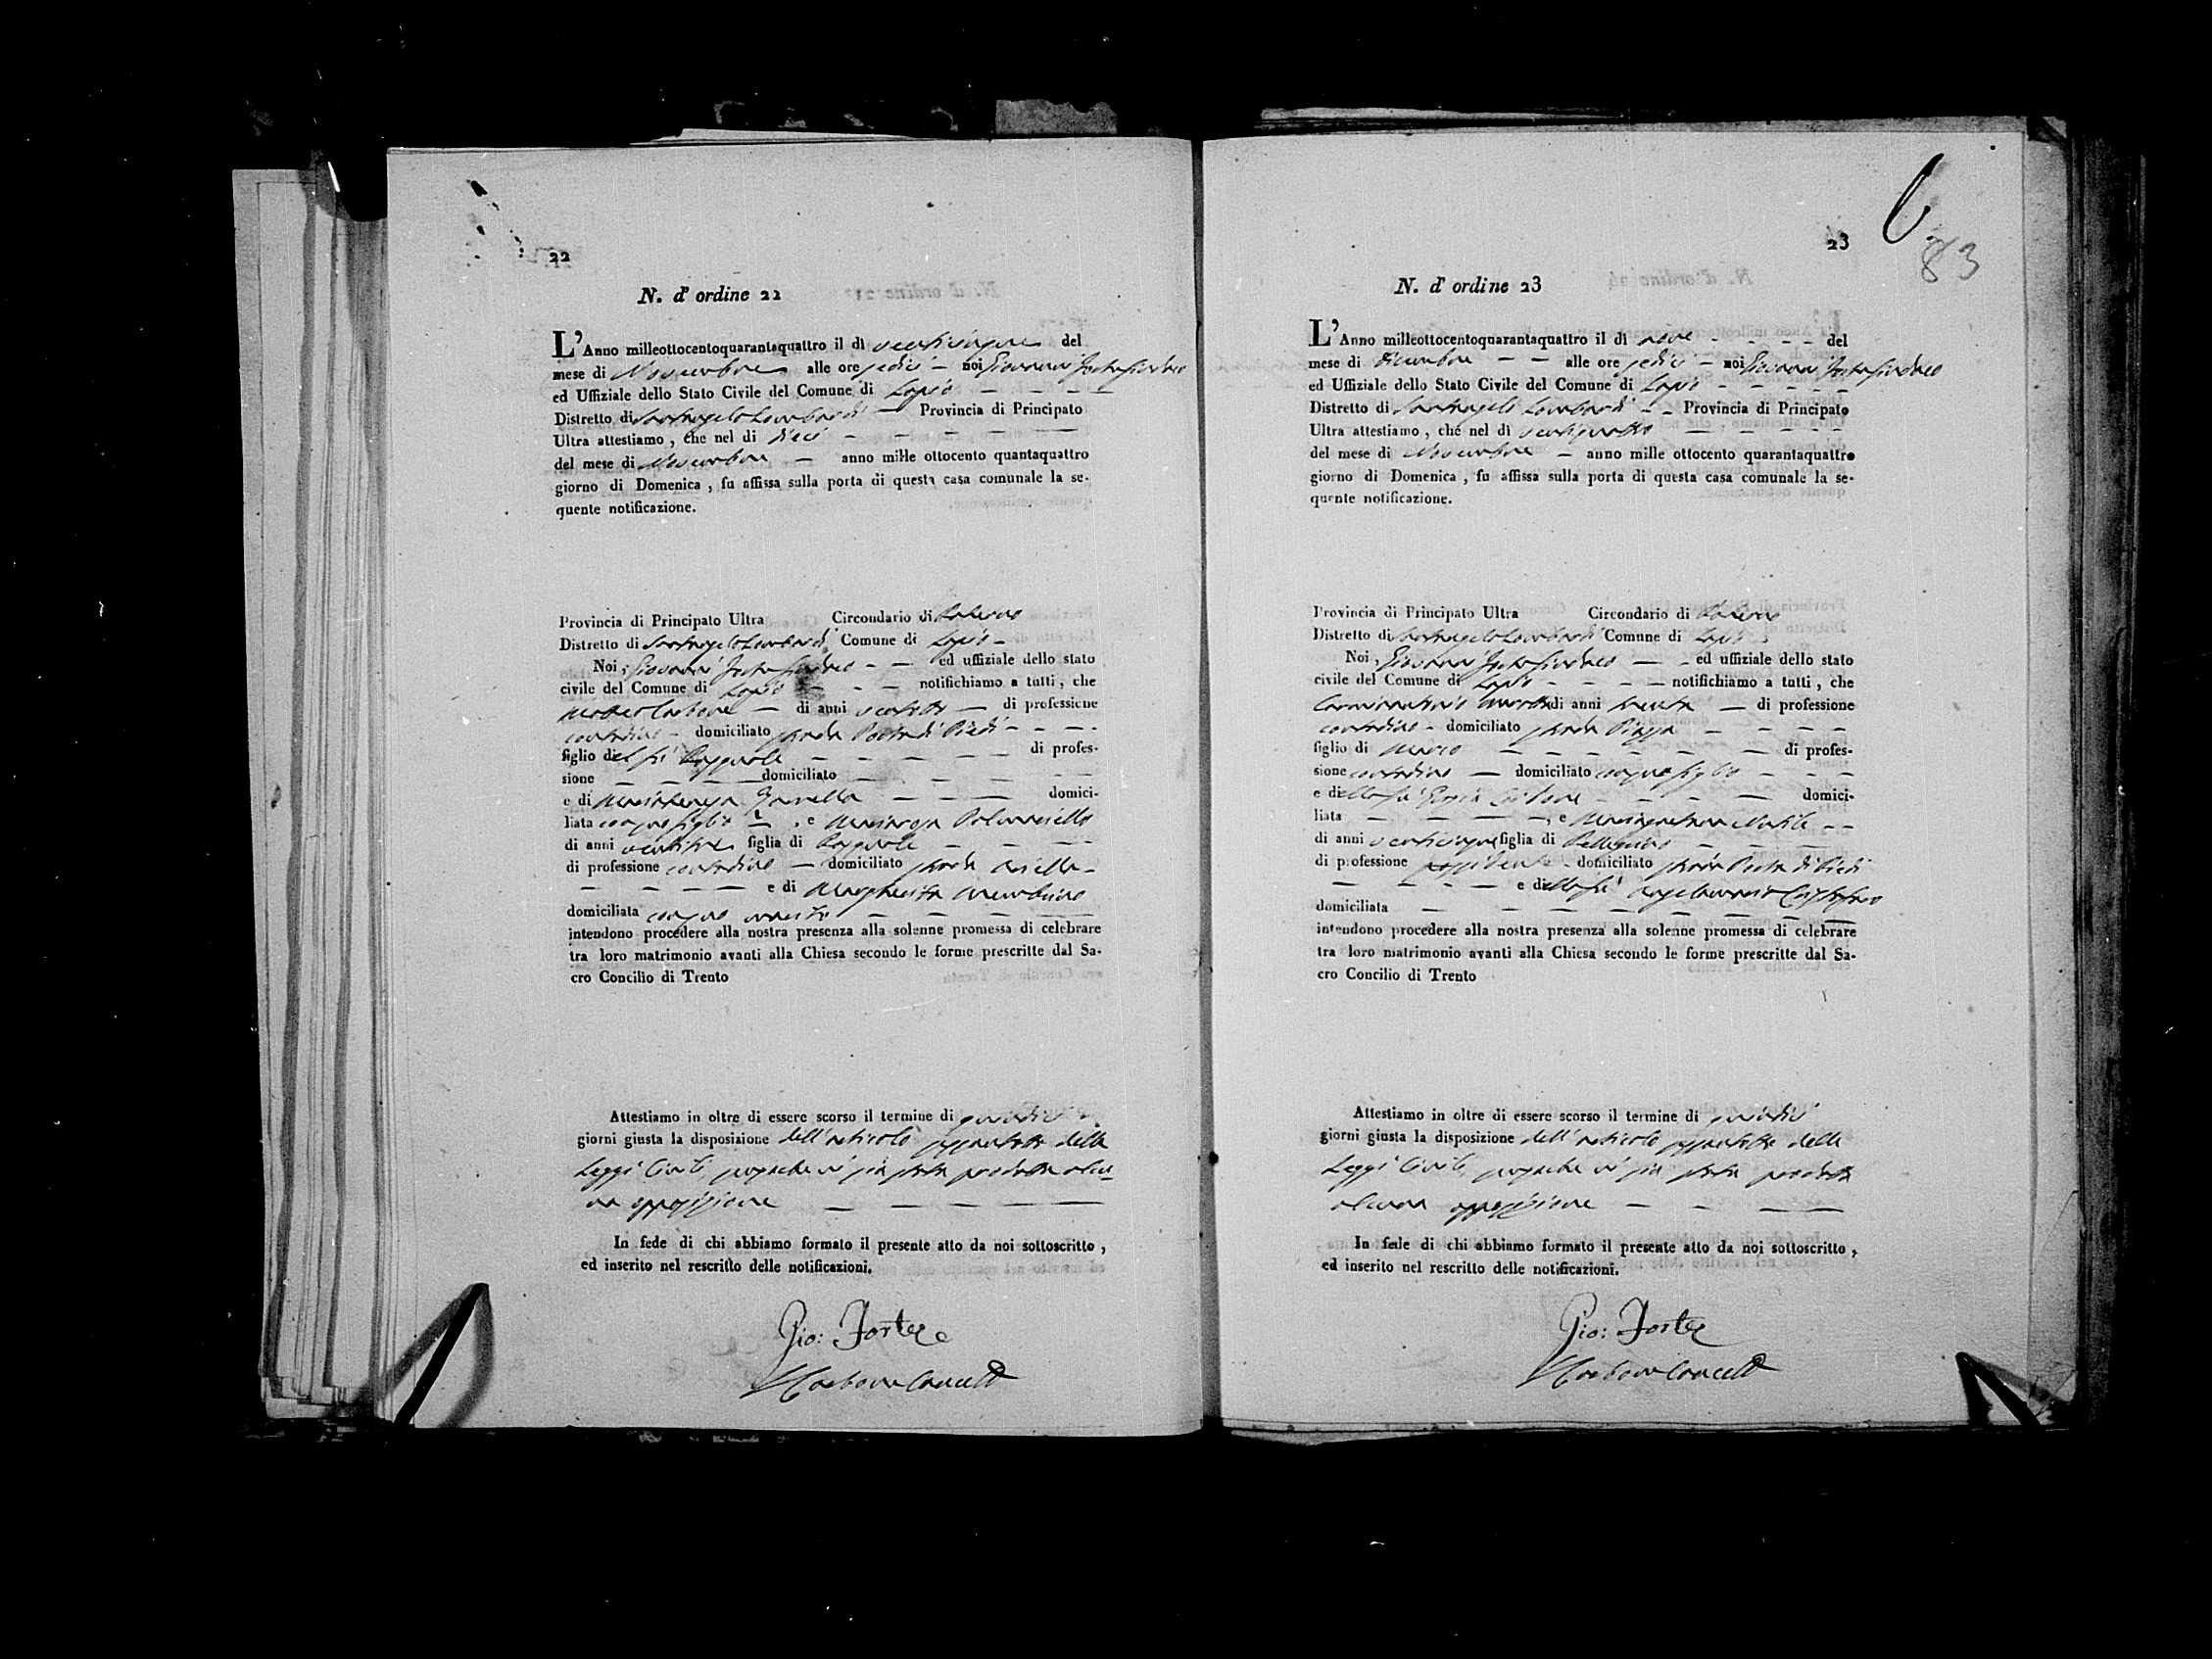 22
N. d' ordine 22
L'Anno milleottocentoquarantaquattro il dì venticinque del
mese di Novembre alle ore sedici – noi Giovanni Forte Sindaco
ed Uffiziale dello Stato Civile del Comune di Lapio – – – –
Distretto di Santangelo Lombardi – Provincia di Principato
Ultra attestiamo, che nel di dieci – – – – –
del mese di Novembre – anno mille ottocento quantaquattro
giorno di Domenica, fu affissa sulla porta di questa casa comunale la se-
quente notificazione.
Provincia di Principato Ultra Circondario di Paterno
Distretto di Santangelo Lombardi Comune di Lapio –
Noi, Giovanni Forte Sindaco – – ed uffiziale dello stato
civile del Comune di Lapio – – – notifichiamo a tutti, che
Matteo Carbone – di anni ventotto – di professione
contadino – domiciliato strada Porta di Piedi – – – –
figlio del fu Raffaele – – – – – di profes-
sione – – – domiciliato – – – – –
e di Mariateresa – – – domici-
liata con suo figlio – , e Palmariello
di anni ventitre figlia di Raffaele – – – –
di professione contadino – domiciliato strada –
– – – – e di Margherita
domiciliata con suo marito – – – – –
intendono procedere alla nostra presenza alla solenne promessa di celebrare
tra loro matrimonio avanti alla Chiesa secondo le forme prescritte dal Sa-
cro Concilio di Trento
Attestiamo in oltre di essere scorso il termine di quindici
giorni giusta la disposizione dell'articolo settantotto delle
Leggi Civili, senzache vi sia stata prodotta alcu-
na opposizione – – – – – –
In fede di chi abbiamo formato il presente atto da noi sottoscritto,
ed inserito nel rescritto delle notificazioni.
Gio: Forte
Carbone Cancell
23
83
N. d' ordine 23
L'Anno milleottocentoquarantaquattro il dì nove – – – – del
mese di Dicembre – – alle ore sedici – noi Giovanni Forte Sindaco
ed Uffiziale dello Stato Civile del Comune di Lapio – – – – –
Distretto di Santangelo Lombardi – – Provincia di Principato
Ultra attestiamo, che nel di ventiquattro – – – – –
del mese di Novembre – anno mille ottocento quarantaquattro
giorno di Domenica, fu affissa sulla porta di questa casa comunale la se-
quente notificazione.
Provincia di Principato Ultra Circondario di Paterno
Distretto di Santangelo Lombardi Comune di Lapio –
Noi, Giovanni Forte Sindaco – – ed uffiziale dello stato
civile del Comune di Lapio – – – – notifichiamo a tutti, che
Carminantonio di anni trenta – di professione
contadino – domiciliato strada Piazza – – – –
figlio di Marco – – – – – – di profes-
sione contadino – domiciliato con suo figlio – – –
e della fu – – – – domici-
liata – – – – , e – –
di anni venticinque figlia di Pellegrino – – – –
di professione possidente – domiciliato strada Porta di Piedi
– – – – e della fu Angelamaria
domiciliata – – – – – – – –
intendono procedere alla nostra presenza alla solenne promessa di celebrare
tra loro matrimonio avanti alla Chiesa secondo le forme prescritte dal Sa-
cro Concilio di Trento
Attestiamo in oltre di essere scorso il termine di quindici
giorni giusta la disposizione dell'articolo settantotto delle
Leggi Civili, senzache vi sia stata prodotta
alcuna opposizione – – – –
In fede di chi abbiamo formato il presente atto da noi sottoscritto,
ed inserito nel rescritto delle notificazioni.
Gio: Forte
Carbone Cancell